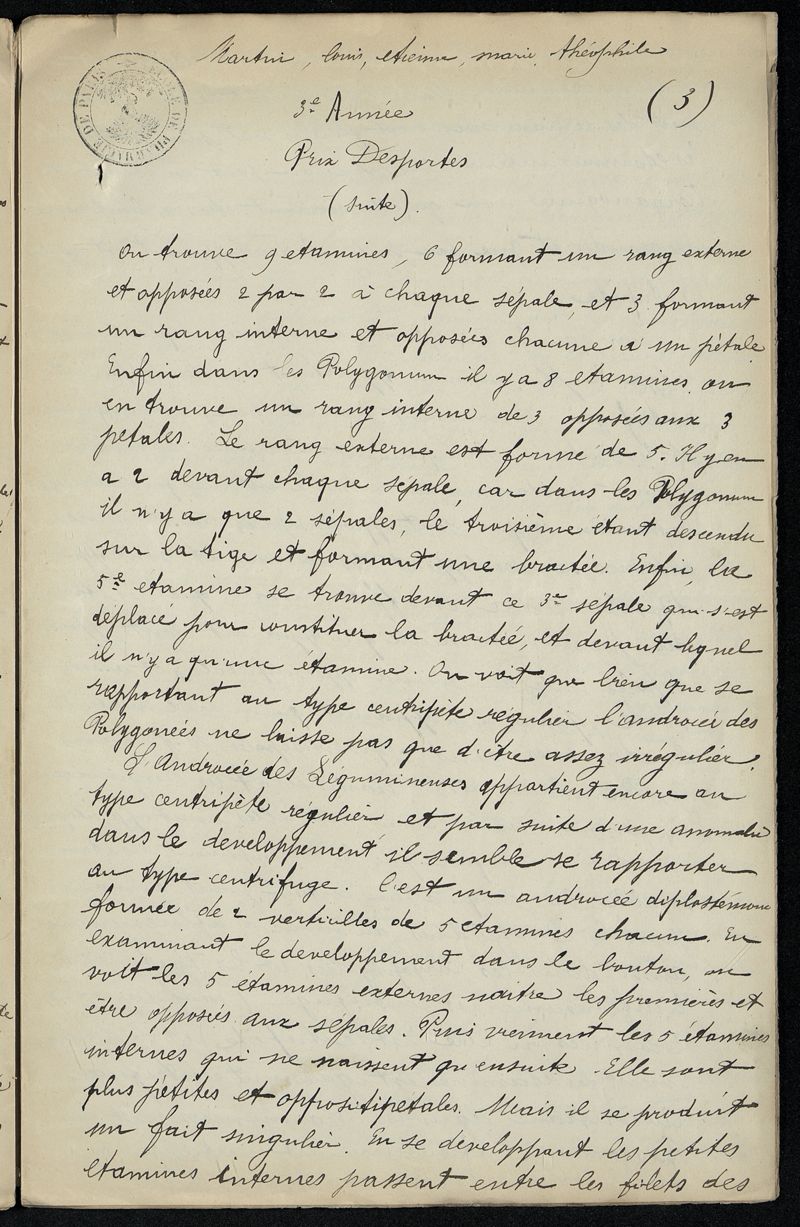 Martin, louis, etienne, marie, théophile
ECOLE DE PHARMACIE DE PARIS
(3)
3e Année
Prix Desportes
(suite).
on trouve 9 etamines, 6 formant un rang externe
et opposées 2 par 2 à chaque sépale, et 3 formant
un rang interne et opposées chacune à un pétale.
Enfin dans les Polygonum il y a 8 etamines, on
en trouve un rang interne de 3 opposées aux 3
petales. Le rang externe est formé de 5. Il y en
a 2 devant chaque sepale, car dans les Polygonum
il n'y a que 2 sépales, le troisième étant descendu
sur la tige et formant une bractée. Enfin, la
5e etamine se trouve devant ce 3e sépale qui s'est
déplacé pour constituer la bractée, et devant lequel
il n'y a qu'une étamine. On voit que bien que se
rapportant au type centripète régulier l'androcée des
Polygonées ne laisse pas que d'être assez irrégulier.
L'Androcée des Légumineuses appartient encore au
type centripète régulier et par suite d'une anomalie
dans le developpement il semble se rapporter
au type centrifuge. C'est un androcée diplostémone
formée de 2 verticilles de 5 etamines chacun. En
examinant le developpement dans le bouton, on
voit les 5 étamines externes naitre les premières et
être opposés aux sépales. Puis viennent les 5 étamines
internes qui ne naissent qu'ensuite. Elle sont
plus pétites et oppositipetales. Mais il se produit
un fait singulier. En se developpant les petites
etamines internes passent entre les filets des